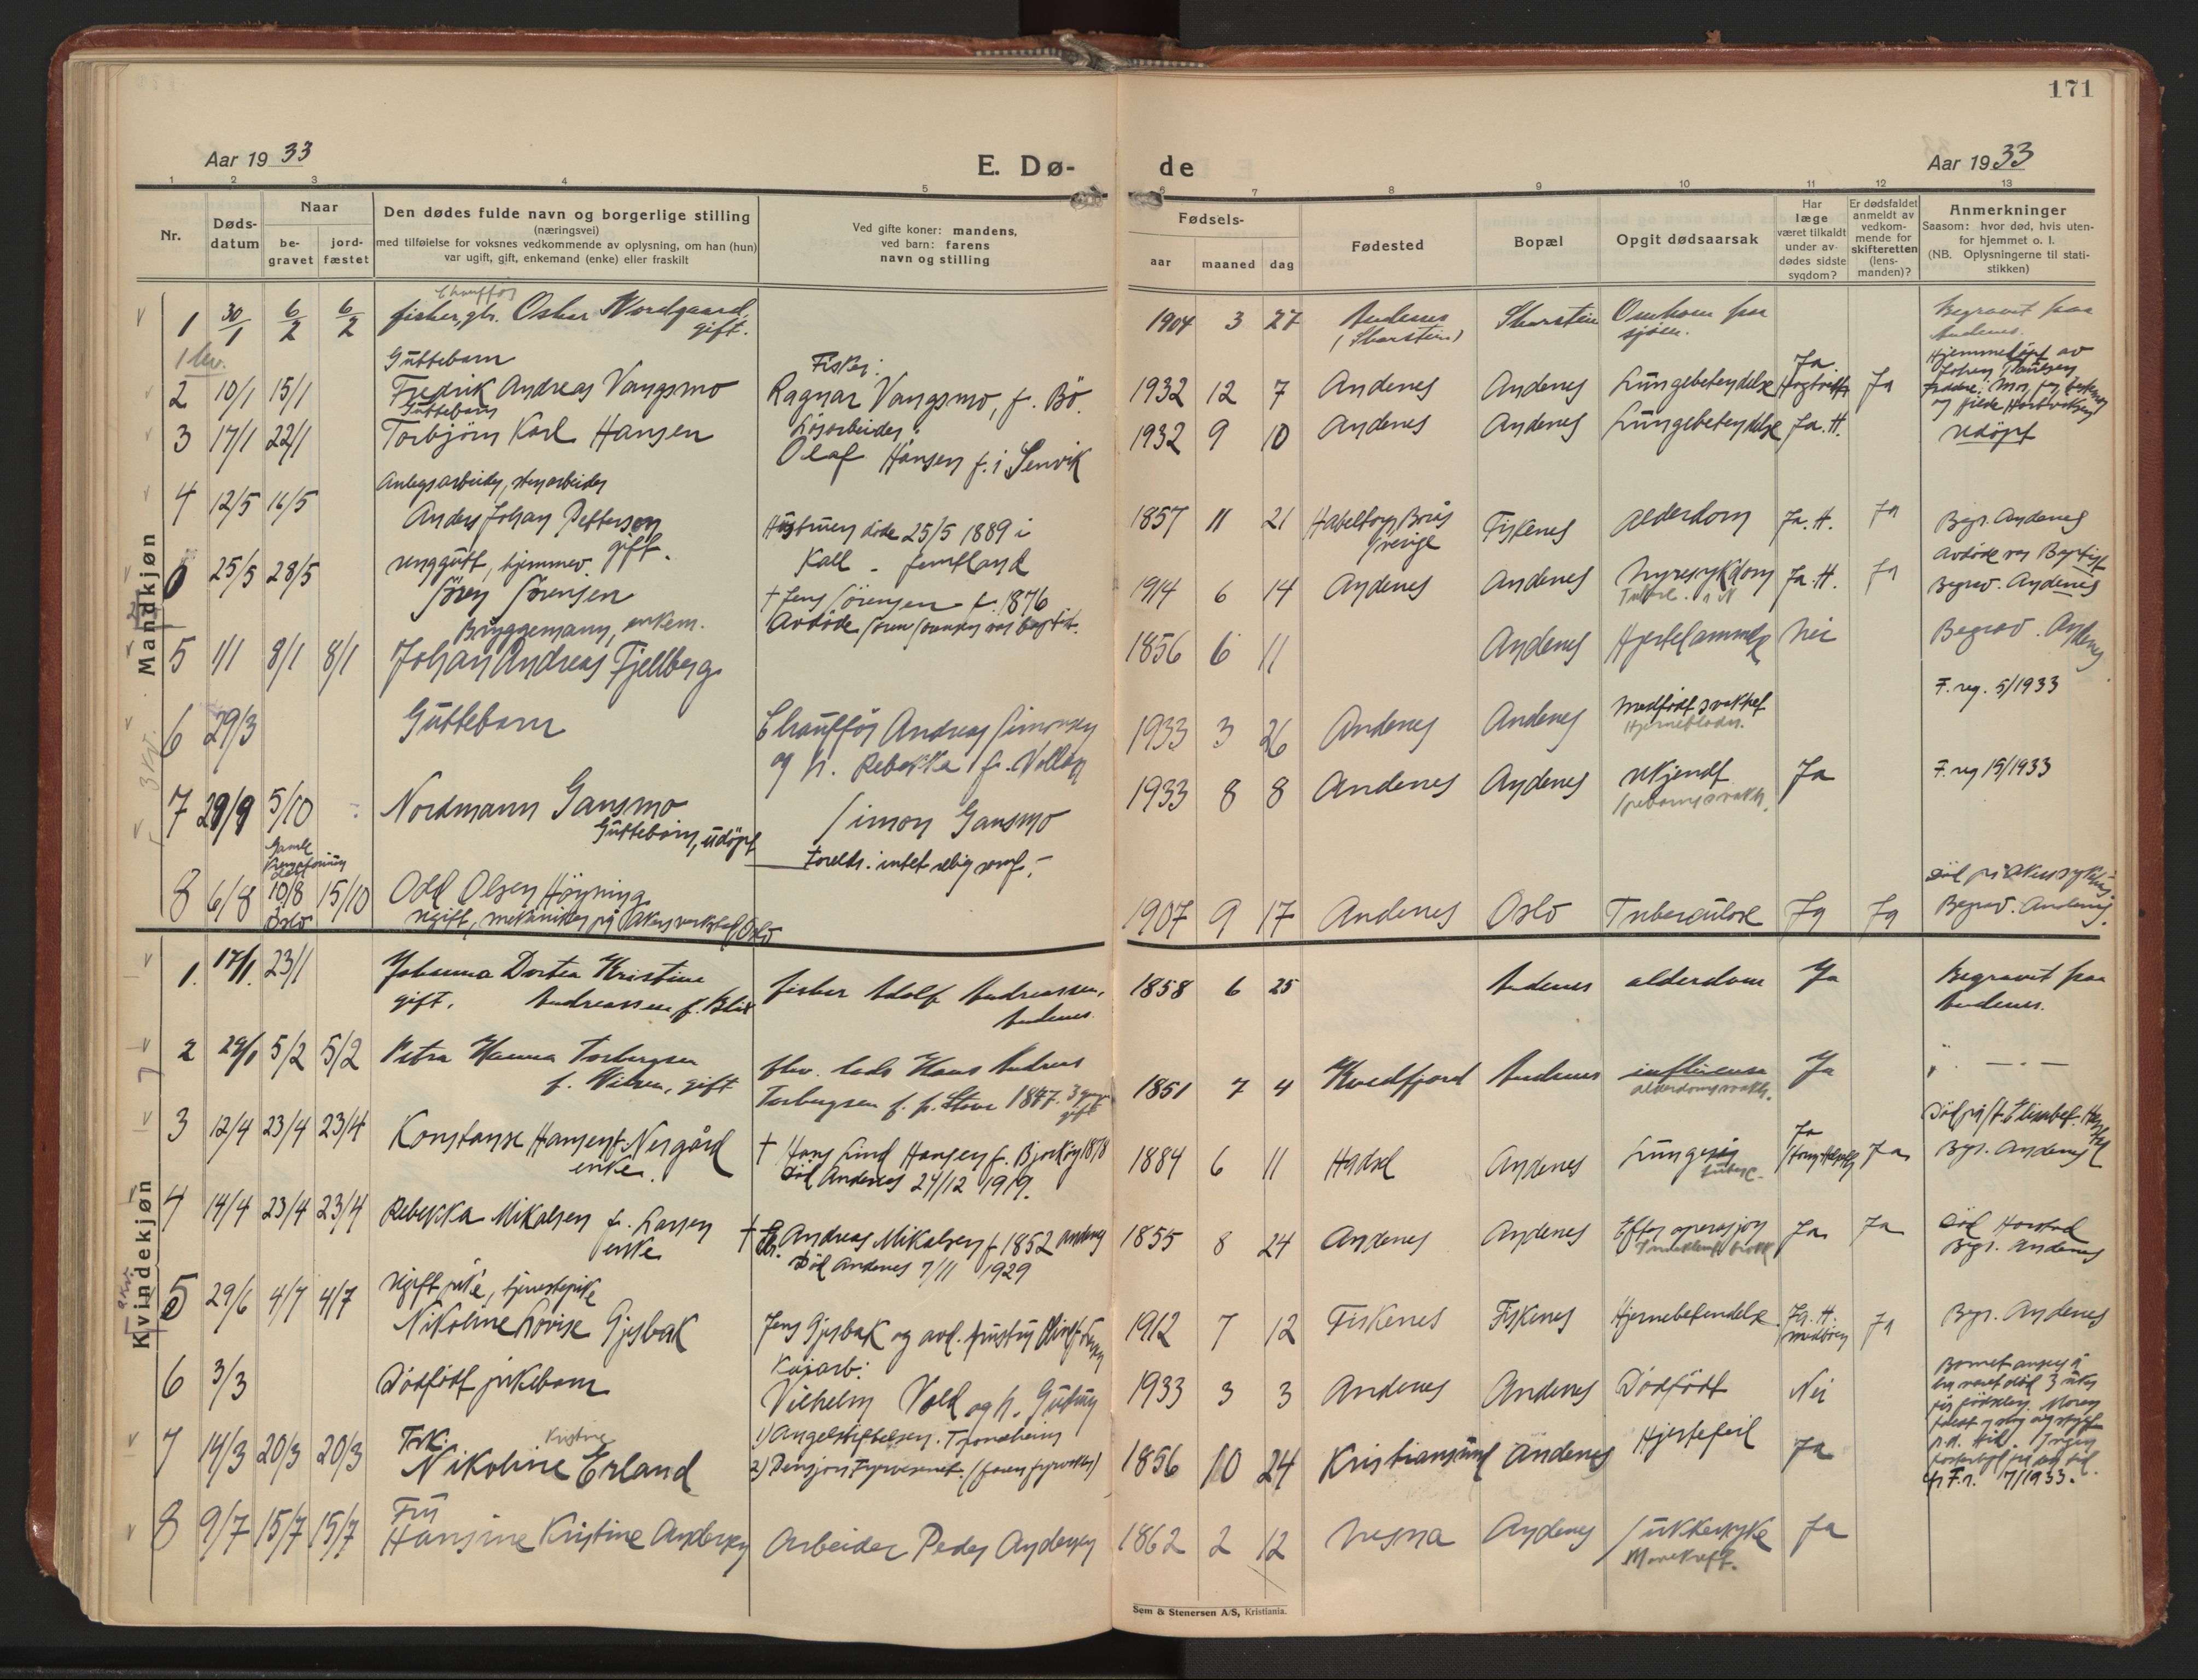 171
Aar 1933
E. Dø-
de
Aar 1933
1 2 3 4 5 6 7 8 9 10 11 12 13
Nr.
Døds-
datum
Naar
be-
gravet
jord-
fæstet
Den dødes fulde navn og borgerlige stilling
(næringsvei)
med tilføielse for voksnes vedkommende av oplysning, om han (hun)
var ugift, gift, enkemand (enke) eller fraskilt
Ved gifte koner: mandens,
ved barn: farens
navn og stilling
Fødsels-
aar
maaned
dag
Fødested
Bopæl
Opgit dødsaarsak
Har
læge
været tilkaldt
under av-
dødes sidste
sygdom?
Er dødsfaldet
anmeldt av
vedkom-
mende for
skifteretten
(lens-
manden)?
Anmerkninger
Saasom: hvor død, hvis uten-
for hjemmet o. l.
(NB. Oplysningerne til stati-
stikken)
Mandkjøn
1 30/1 6/2 6/2 fisker, gb. Oskar Nordgaard, gift. 1904 3 27 Andenes (Skarstein) Skarstein Omkom paa sjøen. Begravet paa Andenes.
Chauffør
Guttebarn
2 10/1 15/1 Fredrik Andreas Vangsmo Fisker. Ragnar Vangsmo, f. Bö. 1932 12 7 Andenes Andenes Lungebetendelse Ja Ja Hjemmedöpt av Johan Paulsen
Guttebarn
3 17/1 22/1 Torbjörn Karl Hansen Lösarbeider: Olaf Hansen f. i Senvik 1932 9 10 Andenes Andenes Lungebetendelse Ja. H. Udöpt
Anlegsarbeider, stenarbeider
4 12/5 16/5 Anders Johan Pettersen gift. Hustruen döde 25/5 1889 i Kall - Jemtland 1857 11 21 Sverige Fiskenes Alderdom Ja. H. Ja Begr. Andenes
unggutt, hjemmev.
25/5 28/5 Sören Sörensen † Jens Sörensen f. 1876 Avdöde Sören Sörensen var baptist. 1914 6 14 Andenes Andenes Nyresykdom Ja. H. Ja Avdöde var Baptist Begrav. Andenes
Bryggemann, enkem.
5 1/1 8/1 8/1 Johan Andreas Fjellberg 1856 6 11 Andenes Hjertelammelse Nei Begrav. Andenes
6 29/3 Guttebarn Chauffør Andreas Simonsen og h. Rebekka f. Vollan 1933 3 26 Andenes Andenes Medfödt svakhet Hjerneblødn. F. reg. 5/1933
7 29/9 5/10 Nordmann Gansmo Guttebarn, udöpt Simon Gansmo Foreldr. intet relig. samf. 1933 8 8 Andenes Andenes Ukjendt Ja F. reg 15/1933
8 6/8 10/8 Oslo 15/10 Odd Olsen Höyning ugift, mekaniker på Akers verksted Oslo 1907 9 17 Andenes Oslo Tuberculose Ja Ja Död på Aker sykehus. Begrav. Andenes.
Kvindekjøn
1. 17/1. 23/1 Johanna Dortea Kristine Andreassen f. Blix gift. fisker Adolf Andreassen, Andenes. 1858 6 25 Andenes alderdom Ja Begravet paa Andenes.
2 29/1 5/2 5/2 Petra Hanna Torbergsen f. Nilsen, gift Hans Andreas Torbergsen 1847. 3 gange gift 1851 7 4 Kvedfjord Andenes influensa alderdomssvakh. Ja " — " —
3 12/4 23/4 23/4 Konstanse Hansen f. Nergård enke. † Hans Lind Hansen f. Bjarköy 1878 Död Andenes 24/12 1919. 1884 6 11 Hadsel Andenes Lunge Ja Ja Begr. Andenes
4 14/4 23/4 23/4 Rebekka Mikalsen f. Larsen enke † Andreas Mikalsen f 1852 Andenes Död Andenes 7/11 1929 1855 8 24 Andenes Andenes Efter operasjon Ja Ja Död Harstad Begr. Andenes
Ugift pike, tjenestepike
5 29/6 4/7 4/7 Nikoline Lovise Gjesbak Jens Gjesbak og avd. hustru 1912 7 12 Fiskenes Fiskenes Hjernebetendelse Ja. H. Ja Begr. Andenes
6 3/3 Dödfödt pikebarn Kaiarb: Vilhelm Vold og h. Gudrun 1933 3 3 Andenes Andenes Dödfödt Nei F.r. 7/1933.
7 14/3 20/3 20/3 Frk: Nikoline Kristine Erland 1) Angelstiftelsen. Trondheim 2) Pensjon Fyrvesenet. 1856 10 24 Kristiansund Andenes Hjertefeil Ja
8 9/7 15/7 15/7 Fru Hansine Kristine Andersen Arbeider Peder Andersen 1862 2 12 Nesna Andenes Sukkersyke Ja
Sem & Stenersen A/S, Kristiania.